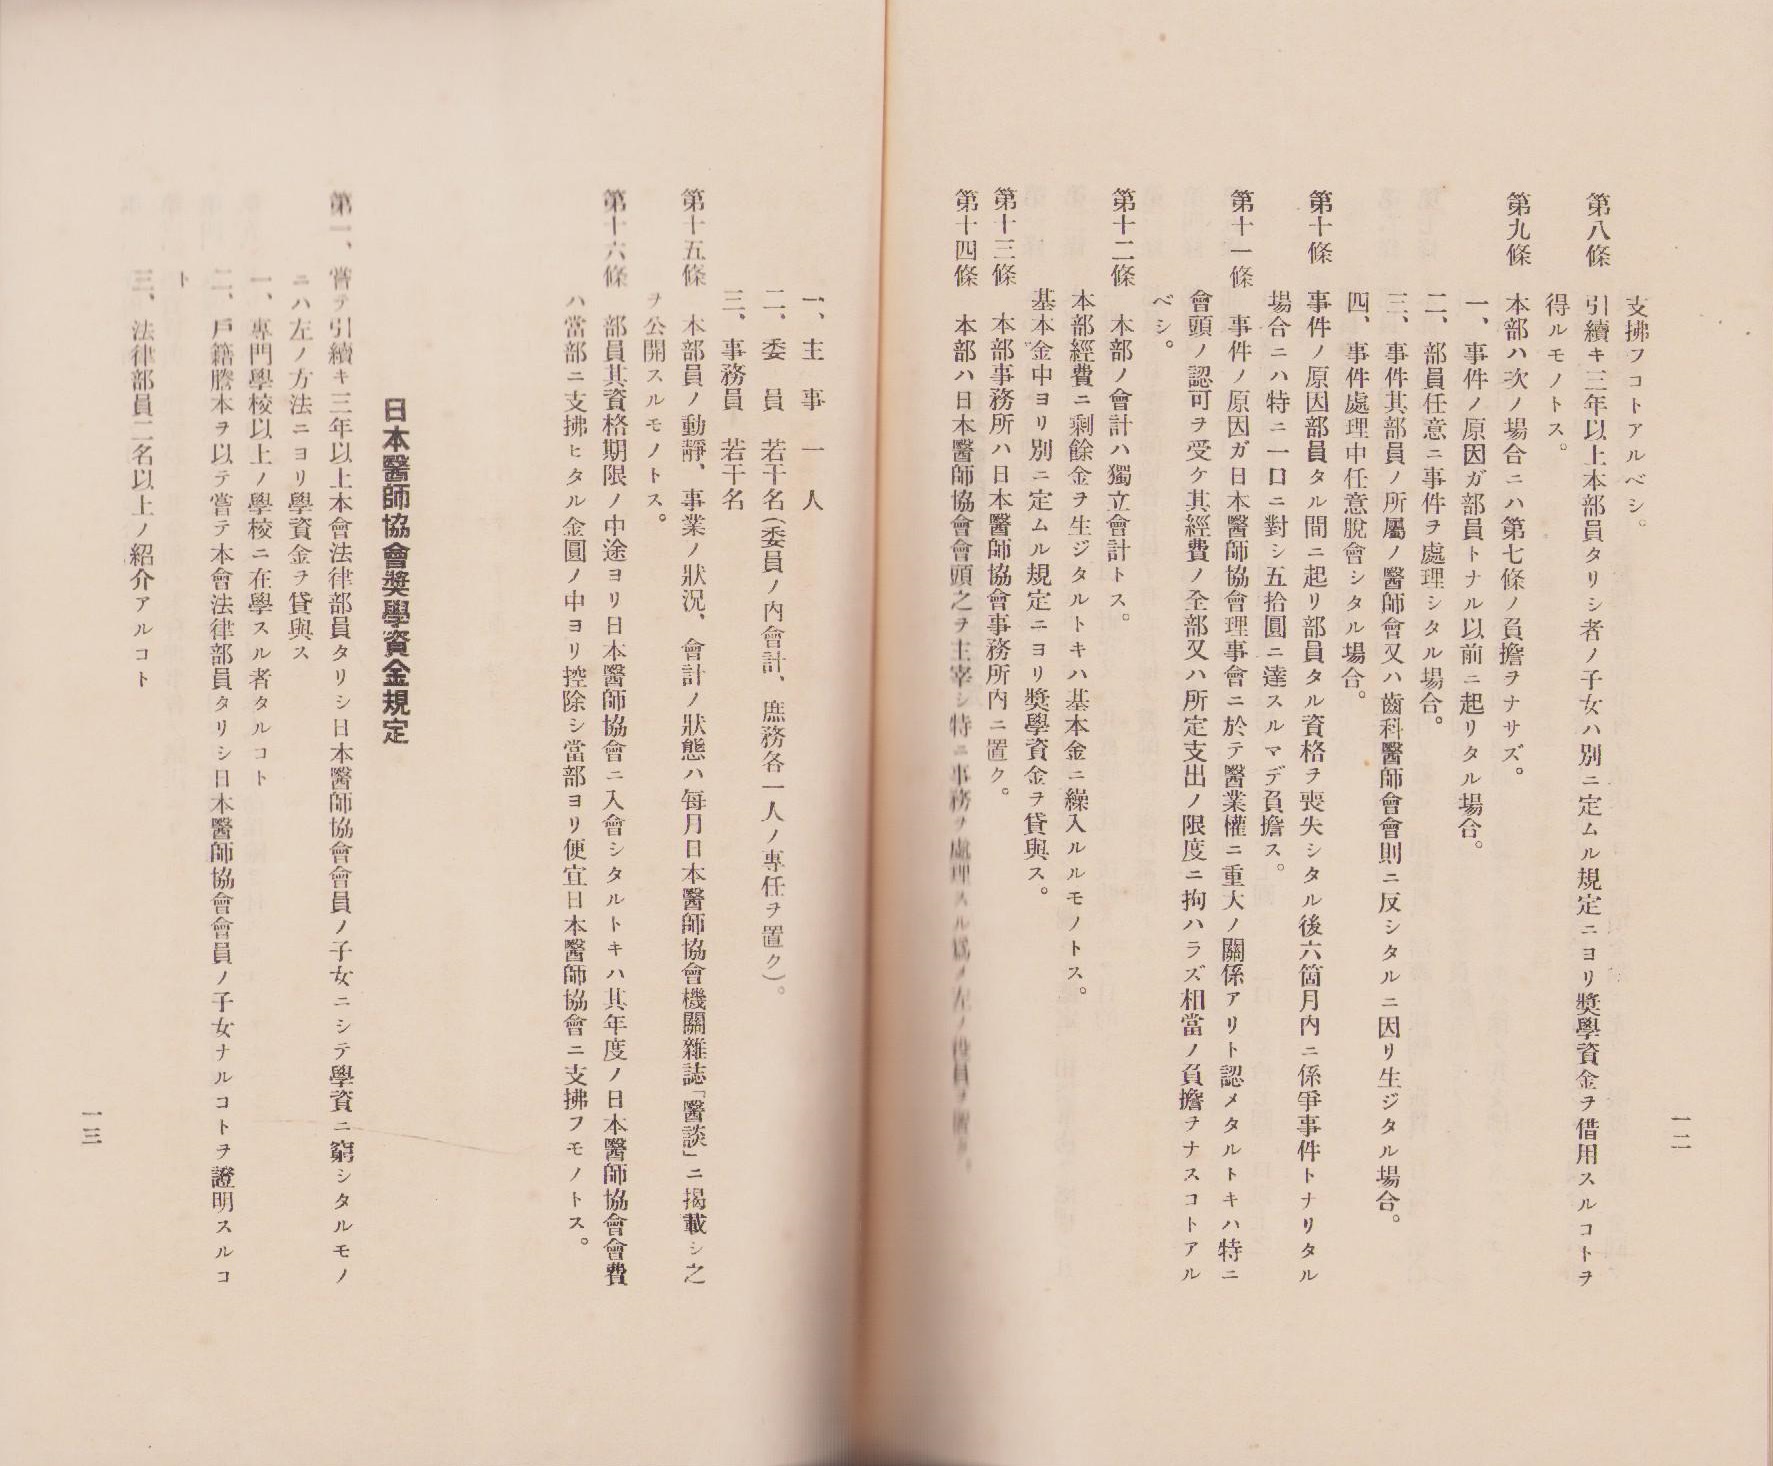 支拂フコトアルベシ。
第八條　引續キ三年以上本部員タリシ者ノ子女ハ別ニ定ムル規定ニヨリ奬學資金ヲ借用スルコトヲ
得ルモノトス。
第九條　本部ハ次ノ場合ニハ第七條ノ負擔ヲナサズ。
一、事件ノ原因ガ部員トナル以前ニ起リタル場合。
二、部員任意ニ事件ヲ處理シタル場合。
三、事件其部員ノ所屬ノ醫師會又ハ齒科醫師會會則ニ反シタルニ因リ生ジタル場合。
四、事件處理中任意脫會シタル場合。
第十條　事件ノ原因部員タル間ニ起リ部員タル資格ヲ喪失シタル後六箇月內ニ係爭事件トナリタル
場合ニハ特ニ一口ニ對シ五拾圓ニ達スルマデ負擔ス。
第十一條　事件ノ原因ガ日本醫師協會理事會ニ於テ醫業權ニ重大ノ關係アリト認メタルトキハ特ニ
會頭ノ認可ヲ受ケ其經費ノ全部又ハ所定支出ノ限度ニ拘ハラズ相當ノ負擔ヲナスコトアル
ベシ。
第十二條　本部ノ會計ハ獨立會計トス。
本部經費ニ剩餘金ヲ生ジタルトキハ基本金ニ繰入ルルモノトス。
基本金中ヨリ別ニ定ムル規定ニヨリ奬學資金ヲ貸與ス。
第十三條　本部事務所ハ日本醫師協會事務所內ニ置ク。
第十四條　本部ハ日本醫師協會會頭之ヲ主宰シ特ニ事務ヲ處理スル爲メ左ノ役員ヲ置ク。
一二
一、主　事　一　人
二、委　員　若干名（委員ノ內會計、庶務各一人ノ專任ヲ置ク）。
三、事務員　若干名
第十五條　本部員ノ動靜、事業ノ狀況、會計ノ狀態ハ每月日本醫師協會機關雜誌「醫談」ニ揭載シ之
ヲ公開スルモノトス。
第十六條　部員其資格期限ノ中途ヨリ日本醫師協會ニ入會シタルトキハ其年度ノ日本醫師協會會費
ハ當部ニ支拂ヒタル金圓ノ中ヨリ控除シ當部ヨリ便宜日本醫師協會ニ支拂フモノトス。
日本醫師協會奬學資金規定
第一、嘗テ引續キ三年以上本會法律部員タリシ日本醫師協會會員ノ子女ニシテ學資ニ窮シタルモノ
ニハ左ノ方法ニヨリ學資金ヲ貸與ス
一、專門學校以上ノ學校ニ在學スル者タルコト
二、戶籍謄本ヲ以テ嘗テ本會法律部員タリシ日本醫師協會會員ノ子女ナルコトヲ證明スルコ
ト
三、法律部員二名以上ノ紹介アルコト
一三